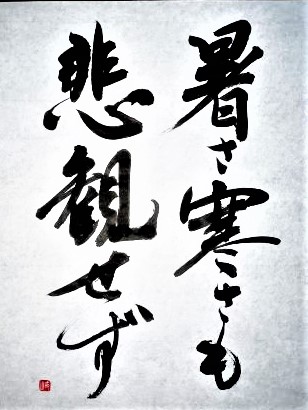 暑さ寒さも
悲観せず